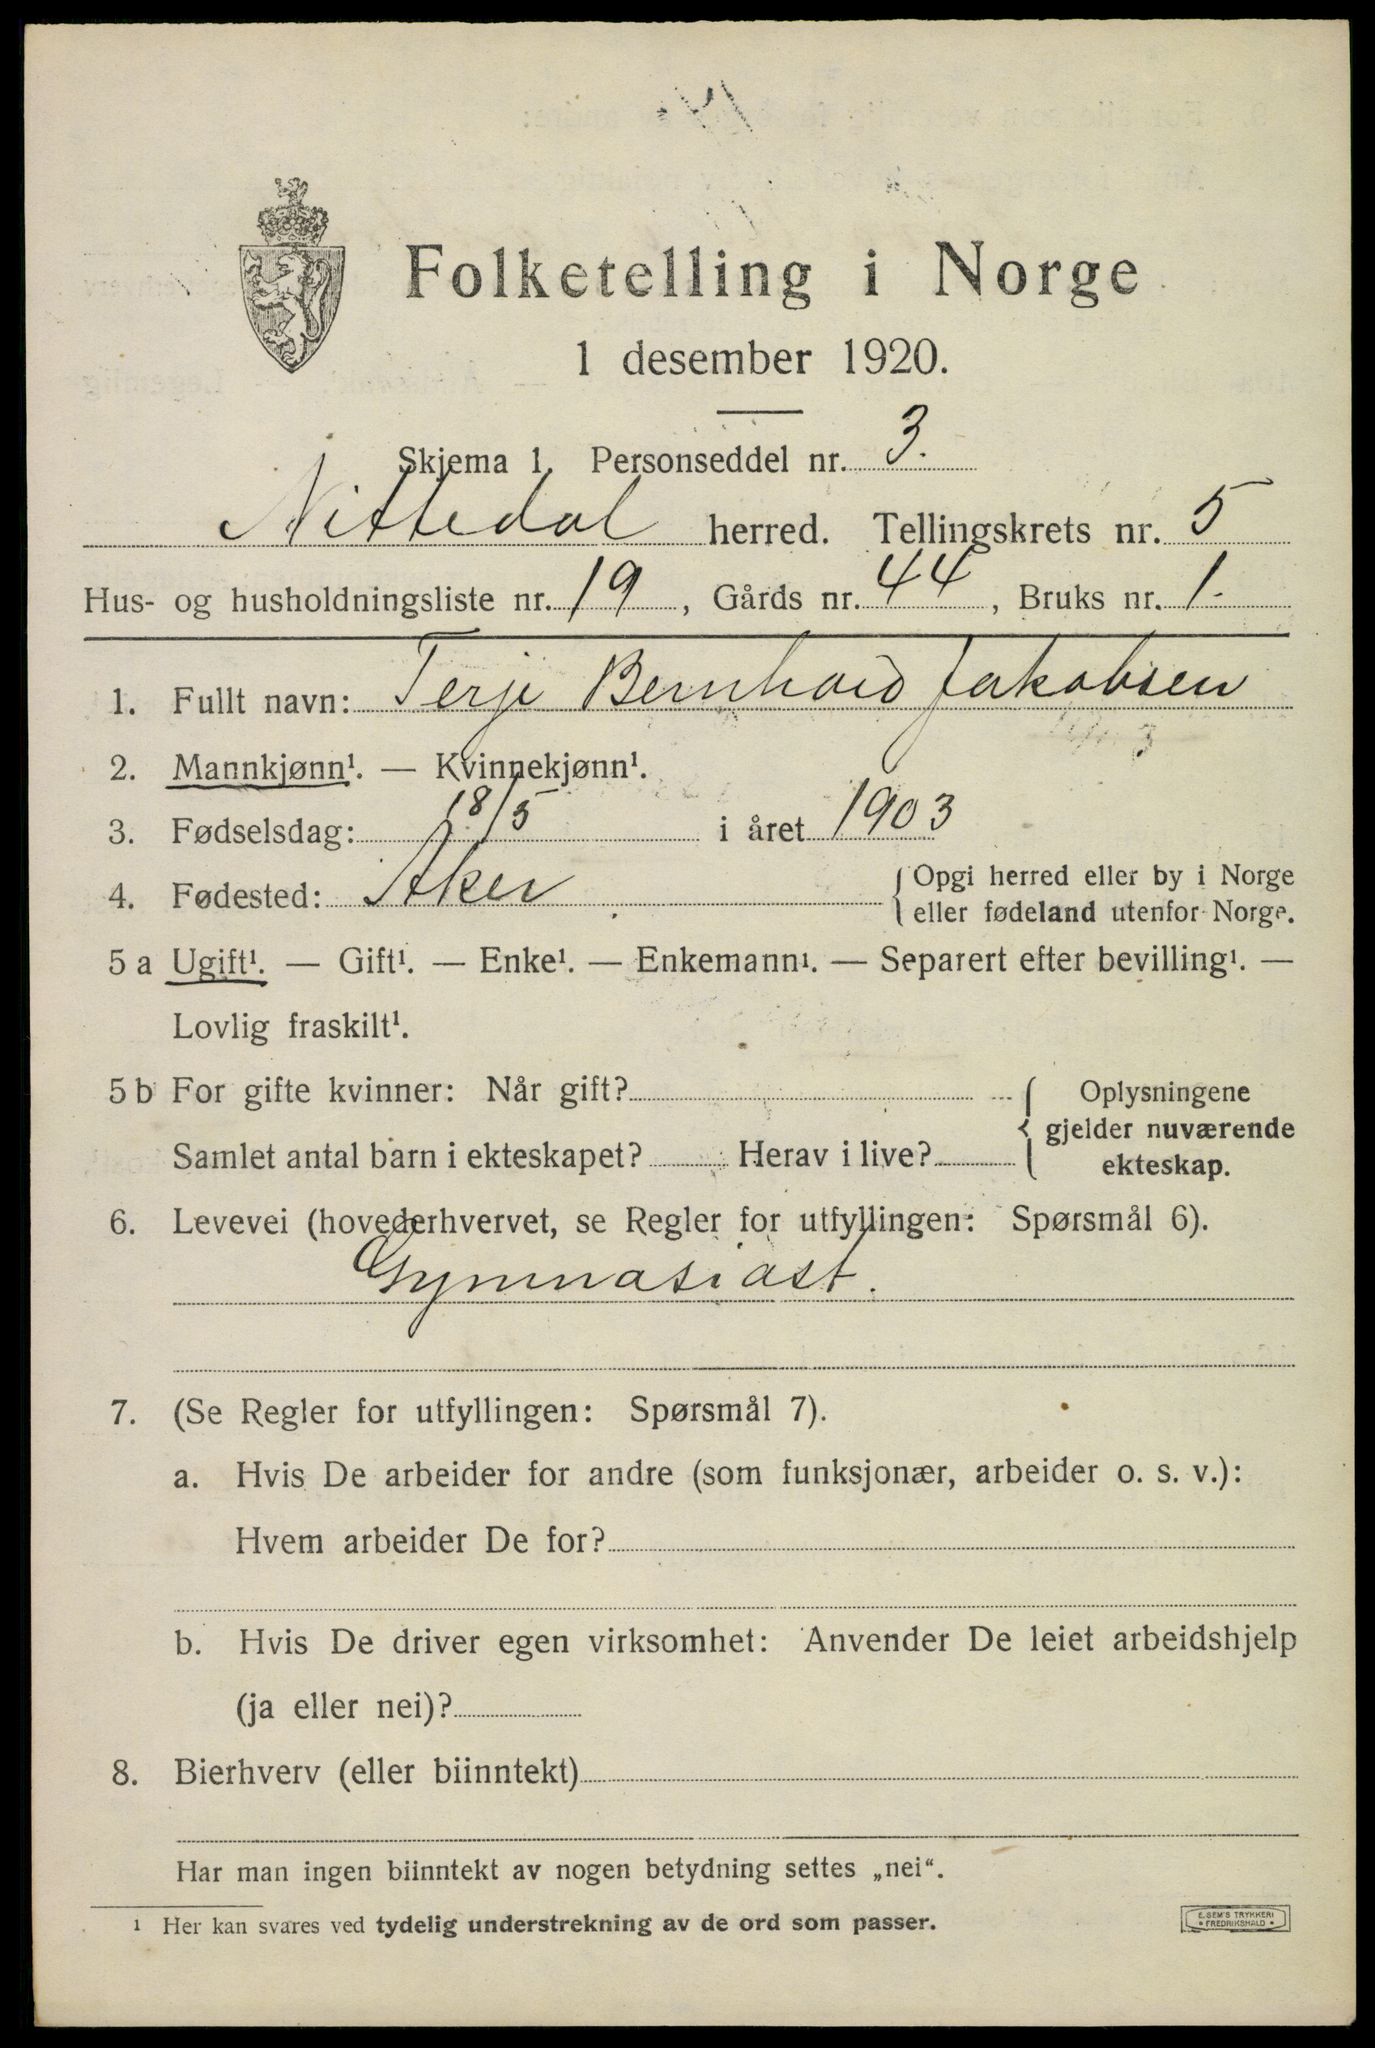 Folketelling i Norge
1 desember 1920.
Skjema 1. Personseddel nr. 3.
Nittedal herred. Tellingskrets nr. 5
Hus- og husholdningsliste nr. 19, Gårds nr. 44, Bruks nr. 1.
1. Fullt navn: Terje Bernhard Jakobsen
2. Mannkjønn¹. — Kvinnekjønn¹.
3. Fødselsdag: 18/5 i året 1903
4. Fødested: Aker { Opgi herred eller by i Norge
eller fødeland utenfor Norge.
5 a Ugift¹. — Gift¹. — Enke¹. — Enkemann¹. — Separert efter bevilling¹. —
Lovlig fraskilt¹.
5 b For gifte kvinner: Når gift? { Oplysningene
gjelder nuværende
Samlet antal barn i ekteskapet? Herav i live? ekteskap.
6. Levevei (hovederhvervet, se Regler for utfyllingen: Spørsmål 6).
Gymnasiast.
7. (Se Regler for utfyllingen: Spørsmål 7).
a. Hvis De arbeider for andre (som funksjonær, arbeider o. s. v.):
Hvem arbeider De for?
b. Hvis De driver egen virksomhet: Anvender De leiet arbeidshjelp
(ja eller nei)?
8. Bierhverv (eller biinntekt)
Har man ingen biinntekt av nogen betydning settes „nei“.
¹ Her kan svares ved tydelig understrekning av de ord som passer.
E. SEM'S TRYKKERI
• FREDRIKSHALD •